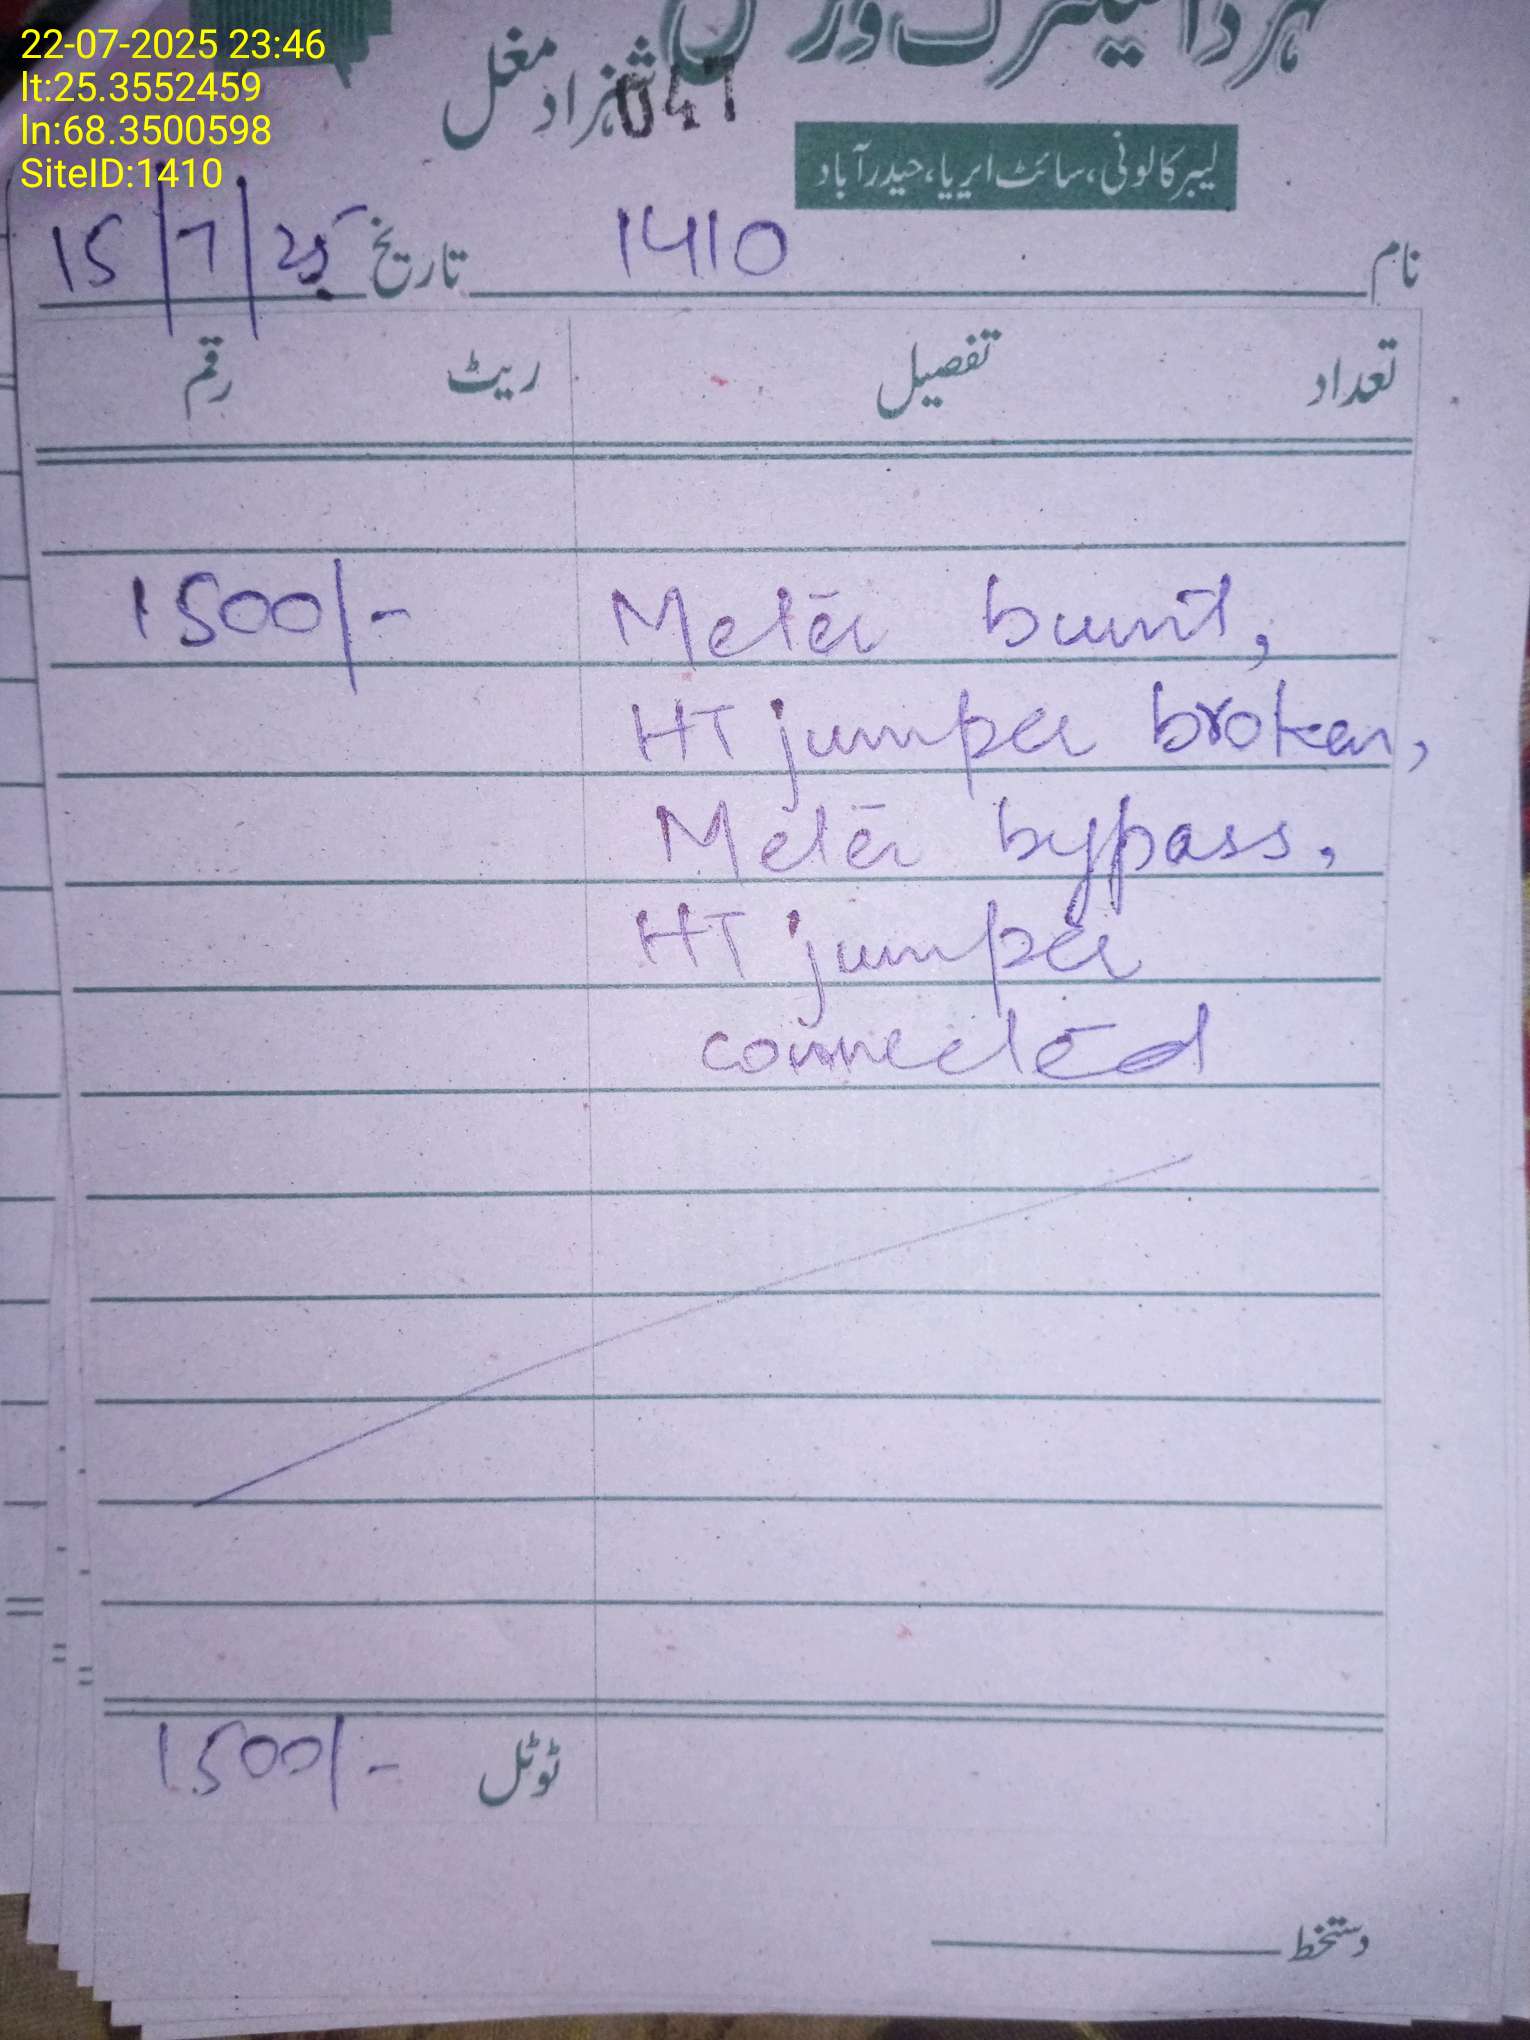 22-07-2025 23:46
lt:25.3552459
ln:68.3500598
SiteID:1410
الیکٹرک ورکس
شہزاد مغل
047
لیبر کالونی، سائٹ ایریا، حیدرآباد
نام 1410 تاریخ 15/7/25
تعداد تفصیل ریٹ رقم
Meter burnt, 1500/-
HT jumper broken,
Meter bypass,
HT jumper
connected
ٹوٹل 1500/-
دستخط